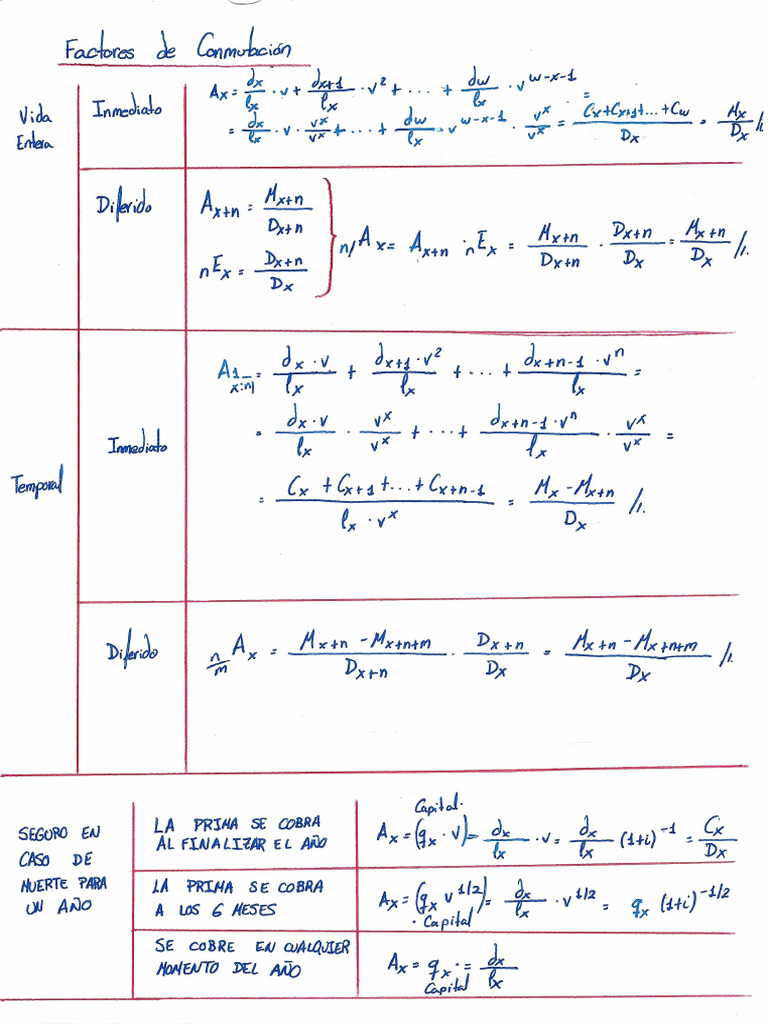 Factores de Conmutación
Vida Entera
Inmediato
Ax = dx/lx · v + dx+1/lx · v² + ... + dw/lx · v^(w-x-1) =
= dx/lx · v · v^x/v^x + ... + dw/lx · v^(w-x-1) · v^x/v^x = (Cx + Cx+1 + ... + Cw)/Dx = Mx/Dx //.
Diferido
Ax+n = Mx+n/Dx+n
nEx = Dx+n/Dx
n/Ax = Ax+n · nEx = Mx+n/Dx+n · Dx+n/Dx = Mx+n/Dx //.
Temporal
Inmediato
A 1 x:n| = dx · v/lx + dx+1 · v²/lx + ... + dx+n-1 · v^n/lx =
= dx · v/lx · v^x/v^x + ... + dx+n-1 · v^n/lx · v^x/v^x =
= (Cx + Cx+1 + ... + Cx+n-1)/(lx · v^x) = (Mx - Mx+n)/Dx //.
Diferido
n/m Ax = (Mx+n - Mx+n+m)/Dx+n · Dx+n/Dx = (Mx+n - Mx+n+m)/Dx //.
SEGURO EN
CASO DE
MUERTE PARA
UN AÑO
LA PRIMA SE COBRA
AL FINALIZAR EL AÑO
Capital·
Ax = (qx · v) = dx/lx · v = dx/lx (1+i)^-1 = Cx/Dx
LA PRIMA SE COBRA
A LOS 6 MESES
Ax = (qx v^1/2) = dx/lx · v^1/2 = qx (1+i)^-1/2
· Capital
SE COBRE EN CUALQUIER
MOMENTO DEL AÑO
Ax = qx · = dx/lx
Capital